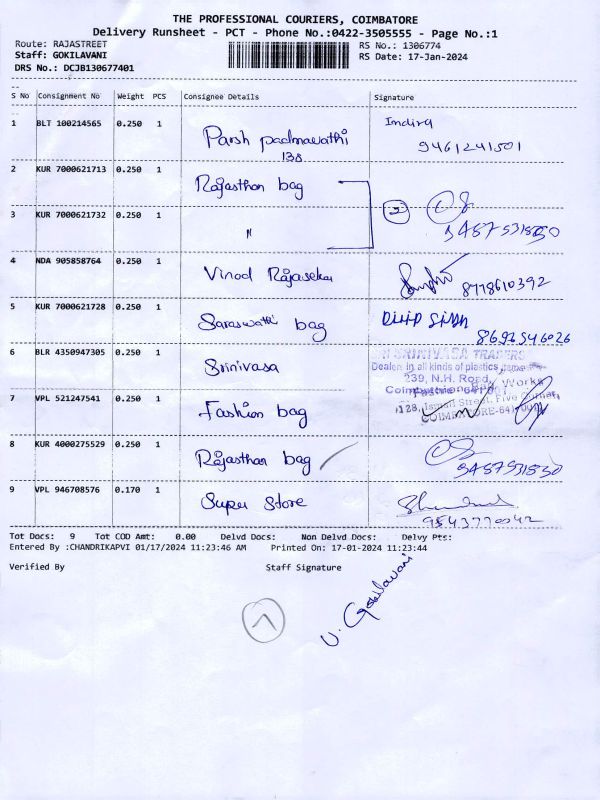 THE PROFESSIONAL COURIERS, COIMBATORE
Delivery Runsheet - PCT - Phone No.:0422-3505555 - Page No.:1
Route: RAJASTREET
Staff: GOKILAVANI
DRS No.: DCJB130677401
RS No.: 1306774
RS Date: 17-Jan-2024
S No Consignment No Weight PCS Consignee Details Signature
1 BLT 100214565 0.250 1 Parsh padmavathi Indira
138 9461241501
2 KUR 7000621713 0.250 1 Rajasthan bag
3 KUR 7000621732 0.250 1 "
2
4 NDA 905858764 0.250 1 Vinod Rajasekar 8778610392
5 KUR 7000621728 0.250 1 Saraswathi bag DILIP SINGH
8696546026
6 BLR 4350947305 0.250 1 Srinivasa
SRINIVASA TRADERS
Dealers in all kinds of plastics
239, N.H. Road,
7 VPL 521247541 0.250 1 Fashion bag
Bag Works
128, Ismail Street, Five Corner,
COIMBATORE-641 001
8 KUR 4000275529 0.250 1 Rajasthan bag
9 VPL 946708576 0.170 1 Super Store
9543770042
Tot Docs: 9 Tot COD Amt: 0.00 Delvd Docs: Non Delvd Docs: Delvy Pts:
Entered By :CHANDRIKAPVI 01/17/2024 11:23:46 AM Printed On: 17-01-2024 11:23:44
Verified By Staff Signature
V. Gokilavani